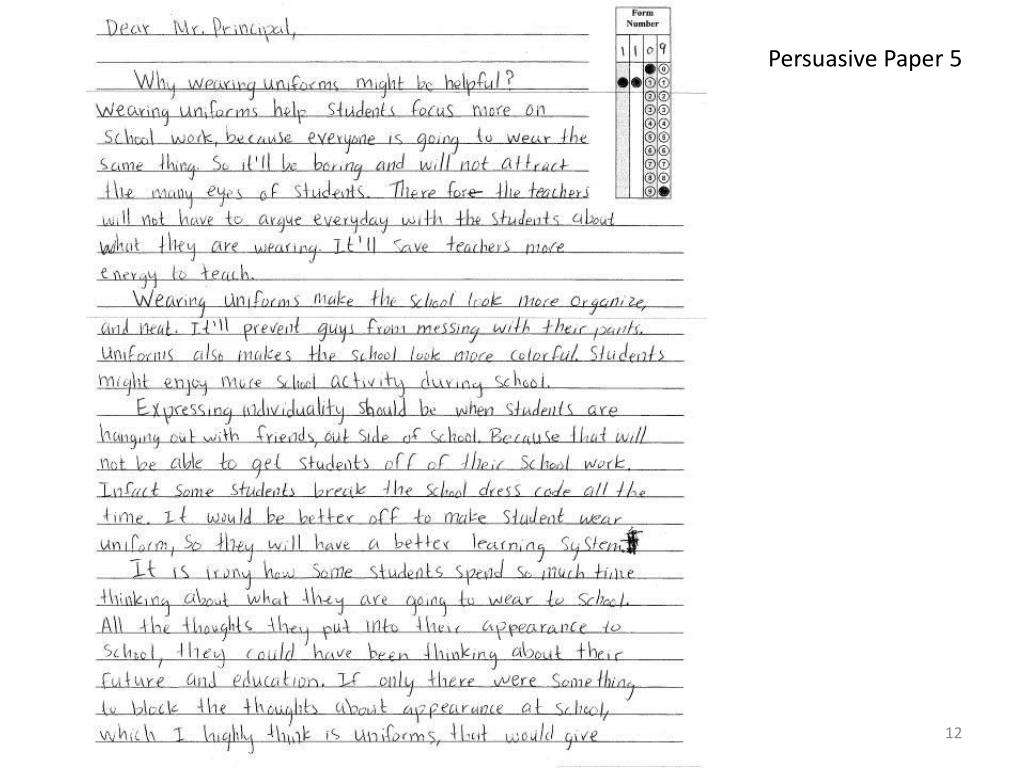 Dear Mr. Principal,
Form
Number
1 1 0 9
0 0
1 1 1 1
2 2
3 3
4 4
5 5
6 6
7 7
8 8
9 9
Persuasive Paper 5
Why wearing uniforms might be helpful?
Wearing uniforms help students focus more on
school work, because everyone is going to wear the
same thing. So it'll be boring and will not attract
the many eyes of students. There fore the teachers
will not have to argue everyday with the students about
what they are wearing. It'll save teachers more
energy to teach.
Wearing uniforms make the school look more organize,
and neat. It'll prevent guys from messing with their pants.
Uniforms also makes the school look more colorful. Students
might enjoy more school activity during school.
Expressing individuality should be when students are
hanging out with friends, out side of school. Because that will
not be able to get students off of their school work.
Infact some students break the school dress code all the
time. It would be better off to make student wear
uniform, so they will have a better learning system
It is irony how some students spend so much time
thinking about what they are going to wear to school.
All the thoughts they put into their appearance to
school, they could have been thinking about their
future and education. If only there were something
to block the thoughts about appearance at school,
which I highly think is uniforms, that would give
12